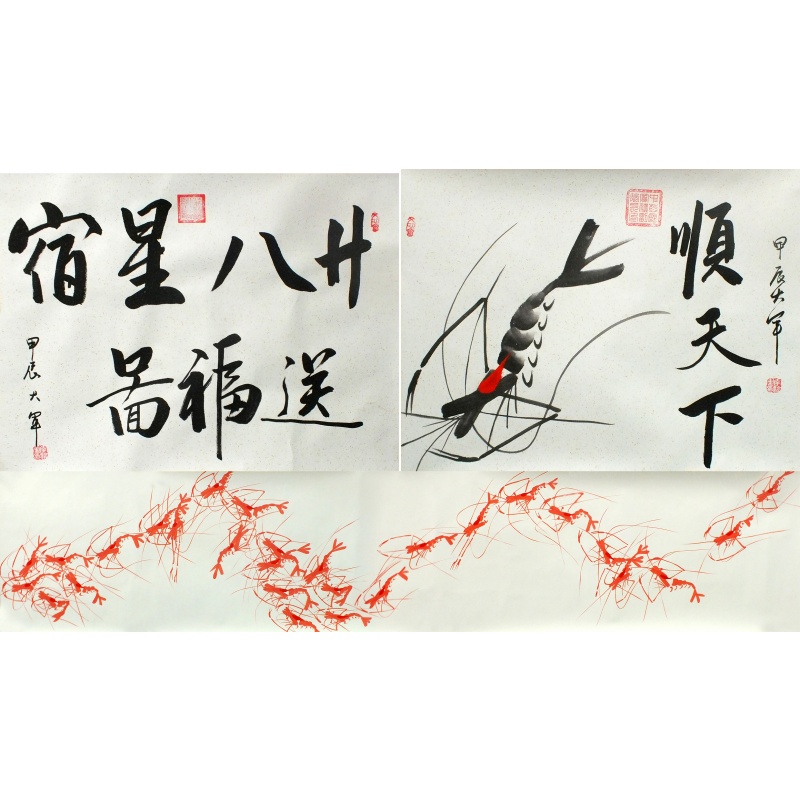 廿八星宿
送福啚
甲辰大军
順天下
甲辰大军